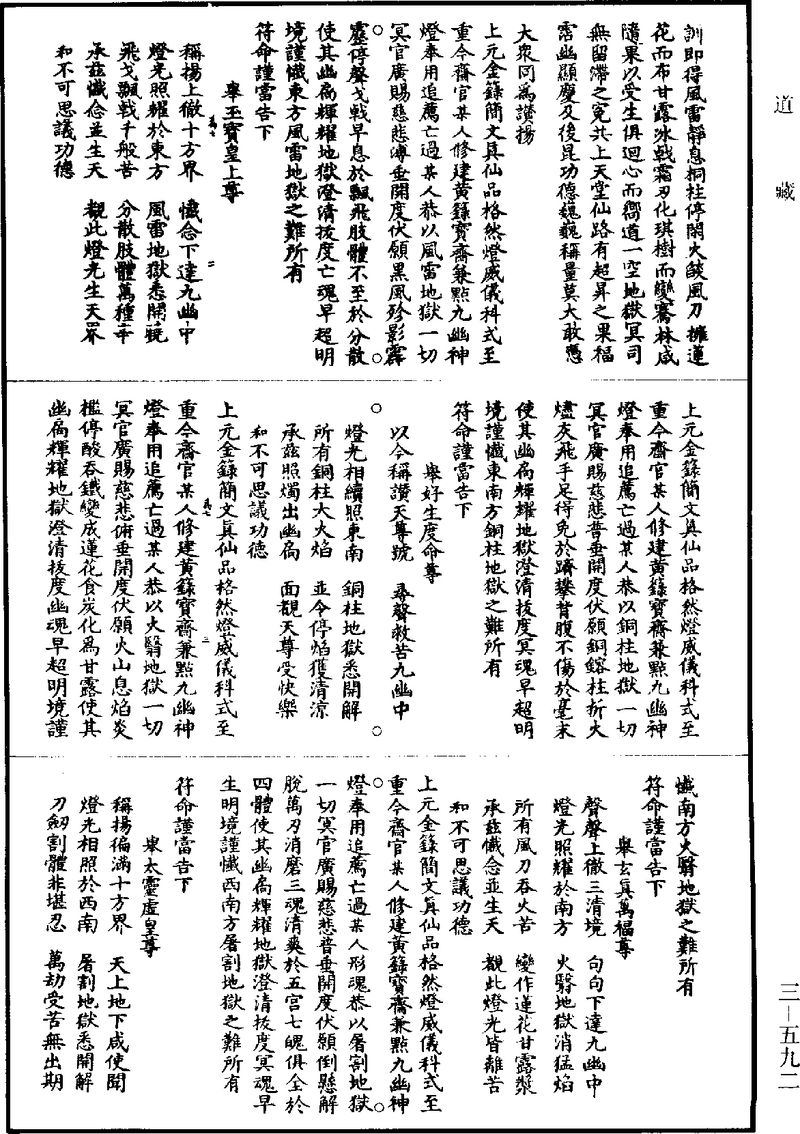 道藏
訓即得風雷靜息銅柱停閑火燄風刀擁蓮
花而布甘露冰戟霜刃化琪樹而變騫林咸
隨果以受生俱迴心而嚮道一空地獄冥司
無留滯之冤共上天堂仙路有超昇之果福
霑幽顯慶及後昆功德巍巍稱量莫大敢憑
大衆同為讚揚
上元金籙簡文真仙品格然燈威儀科式至
重今齋官某人修建黃籙寶齋兼點九幽神
燈奉用追薦亡過某人恭以風雷地獄一切
冥官廣賜慈悲溥垂開度伏願黑風殄影霹
靂停聲戈戟早息於飄飛肢體不至於分散
使其幽扃輝耀地獄澄清拔度亡魂早超明
境謹懺東方風雷地獄之難所有
符命謹當告下
舉玉寶皇上尊
稱揚上徹十方界　懺念下達九幽中
燈光照耀於東方　風雷地獄悉開
飛戈飄戟千般苦　分散肢體萬種辛
承茲懺念並生天　覩此燈光生天界
和不可思議功德
上元金籙簡文真仙品格然燈威儀科式至
重今齋官某人修建黃籙寶齋兼點九幽神
燈奉用追薦亡過某人恭以銅柱地獄一切
冥官廣賜慈悲普垂開度伏願銅鎔柱折火
燼灰飛手足得免於躋攀背腹不傷於毫末
使其幽扃輝耀地獄澄清拔度冥魂早超明
境謹懺東南方銅柱地獄之難所有
符命謹當告下
舉好生度命尊
以今稱讚天尊號　尋聲救苦九幽中
燈光相續照東南　銅柱地獄悉開解
所有銅柱大火焰　並令停焰獲清涼
承茲照燭出幽扃　面觀天尊受快樂
和不可思議功德
上元金籙簡文真仙品格然燈威儀科式至
重今齋官某人修建黃籙寶齋兼點九幽神
燈奉用追薦亡過某人恭以火翳地獄一切
冥官廣賜慈悲俯垂開度伏願火山息焰炎
檻停酸吞鐵變成蓮花食炭化為甘露使其
幽扃輝耀地獄澄清拔度幽魂早超明境謹
懺南方火翳地獄之難所有
符命謹當告下
舉玄真萬福尊
聲聲上徹三清境　句句下達九幽中
燈光照耀於南方　火翳地獄消猛焰
所有風刀吞火苦　變作蓮花甘露漿
承茲懺念並生天　覩此燈光皆離苦
和不可思議功德
上元金籙簡文真仙品格然燈威儀科式至
重今齋官某人修建黃籙寶齋兼點九幽神
燈奉用追薦亡過某人形魂恭以屠割地獄
一切冥官廣賜慈悲普垂開度伏願倒懸解
脫萬刃消磨三魂清爽於五宮七魄俱全於
四體使其幽扃輝耀地獄澄清拔度冥魂早
生明境謹懺西南方屠割地獄之難所有
符命謹當告下
舉太靈虛皇尊
稱揚徧滿十方界　天上地下咸使聞
燈光相照於西南　屠割地獄悉開解
刀劒割體非堪忍　萬劫受苦無出期
三—五九二